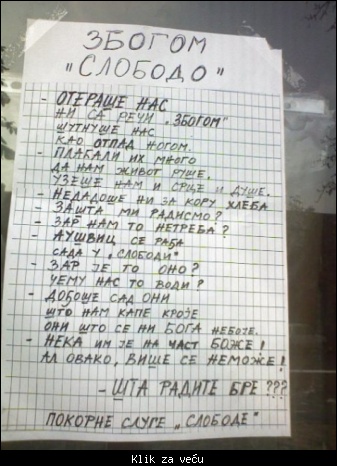 ЗБОГОМ
"СЛОБОДО"
- ОТЕРАШЕ НАС
НИ СА РЕЧИ „ЗБОГОМ"
ШУТНУШЕ НАС
КАО ОТПАД НОГОМ.
- ПЛАЋАЛИ ИХ МНОГО
ДА НАМ ЖИВОТ РУШЕ.
УЗЕШЕ НАМ И СРЦЕ И ДУШЕ.
- НЕДАДОШЕ НИ ЗА КОРУ ХЛЕБА
- ЗАШТА МИ РАДИСМО?
- ЗАР НАМ ТО НЕТРЕБА?
- АУШВИЦ СЕ РАЂА
САДА У „СЛОБОДИ"
- ЗАР ЈЕ ТО ОНО?
ЧЕМУ НАС ТО ВОДИ?
- ДОЂОШЕ САД ОНИ
ШТО НАМ КАПЕ КРОЈЕ
ОНИ ШТО СЕ НИ БОГА НЕБОЈЕ.
- НЕКА ИМ ЈЕ НА ЧАСТ БОЖЕ!
АЛ ОВАКО, ВИШЕ СЕ НЕМОЖЕ!
- ШТА РАДИТЕ БРЕ???
ПОКОРНЕ СЛУГЕ „СЛОБОДЕ"
Klik za veću